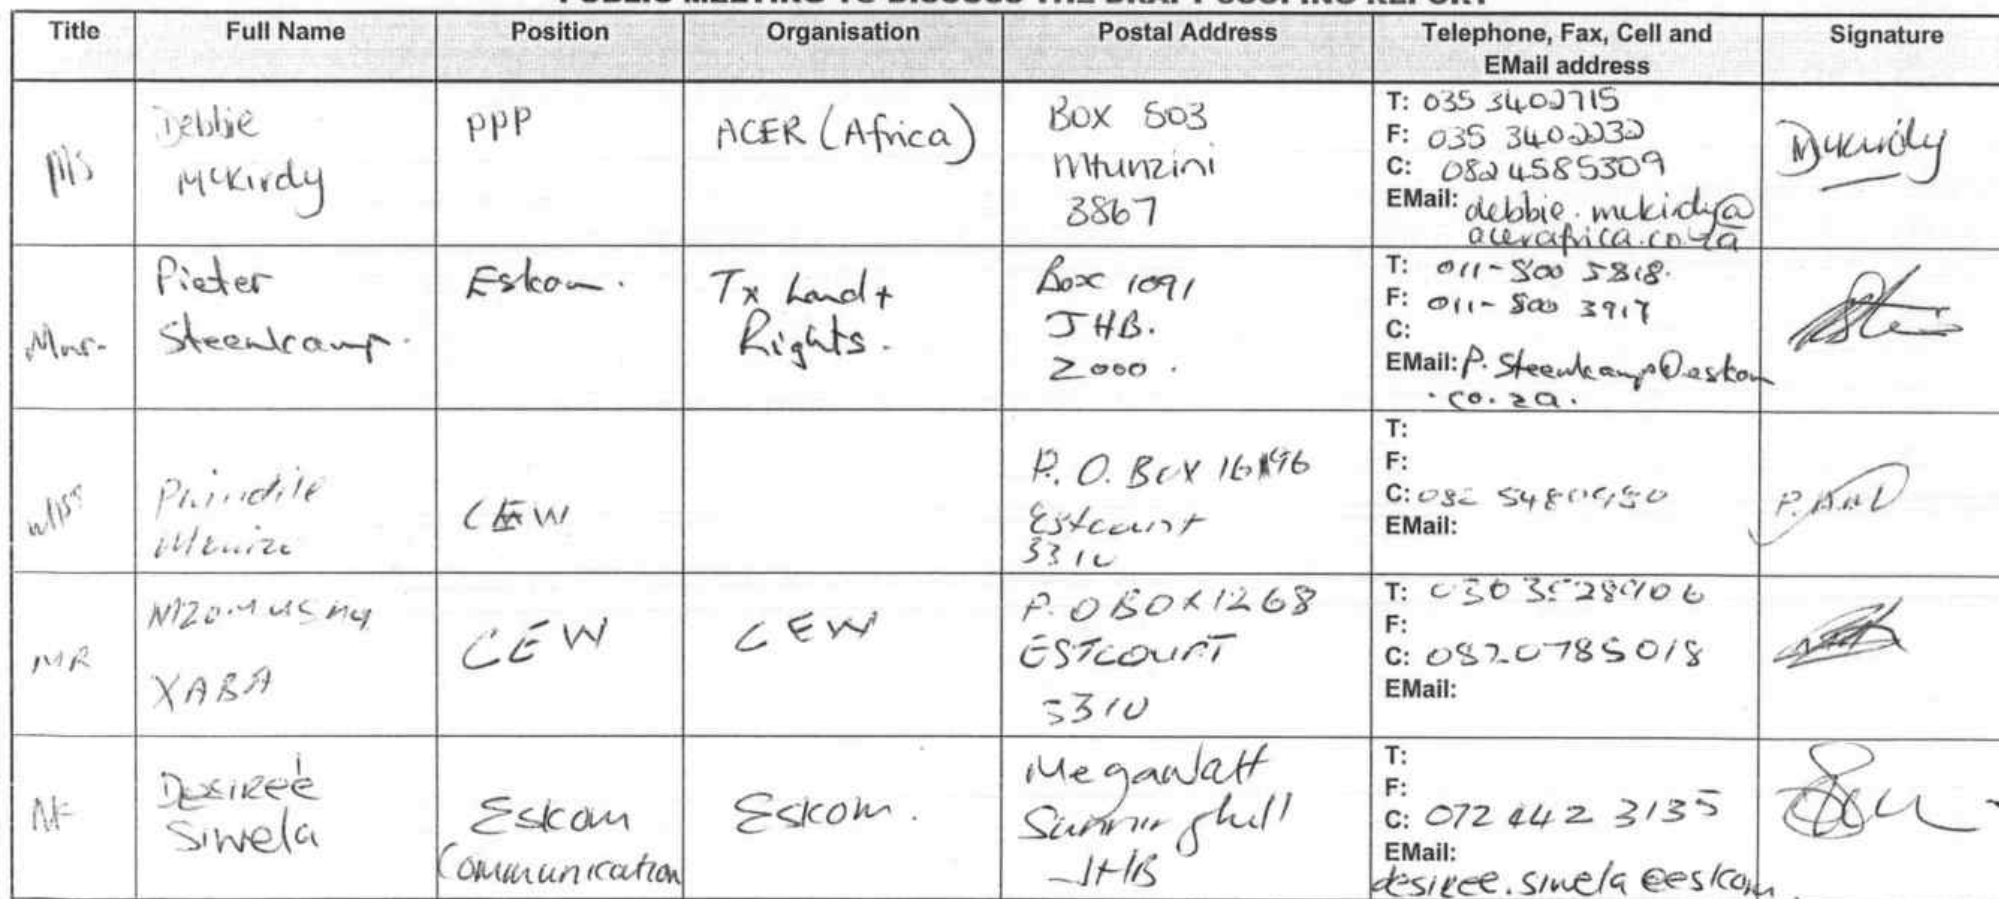 PUBLIC MEETING TO DISCUSS THE DRAFT SCOPING REPORT
Title Full Name Position Organisation Postal Address Telephone, Fax, Cell and EMail address Signature
Ms
Debbie
McKirdy
PPP
ACER (Africa)
Box 503
Mtunzini
3867
T: 035 3402715
F: 035 3402232
C: 0824585309
EMail: debbie.mckirdy@
acerafrica.co.za
McKirdy
Mnr.
Pieter
Steenkamp.
Eskom.
Tx Land +
Rights.
Box 1091
JHB.
2000.
T: 011-800 5818.
F: 011-800 3917
C:
EMail: P.Steenkamp@eskom
.co.za.
CEW
P.O. Box
Estcourt
3310
T:
F:
C: 082
EMail:
MR
XABA
CEW
CEW
P.O BOX 1268
ESTCOURT
3310
T:
F:
C: 0820785018
EMail:
Desireé
Sinela
Eskom
Communication
Eskom.
Megawatt
Sunninghill
JHB
T:
F:
C: 072 442 3135
EMail:
desiree.sinela@eskom